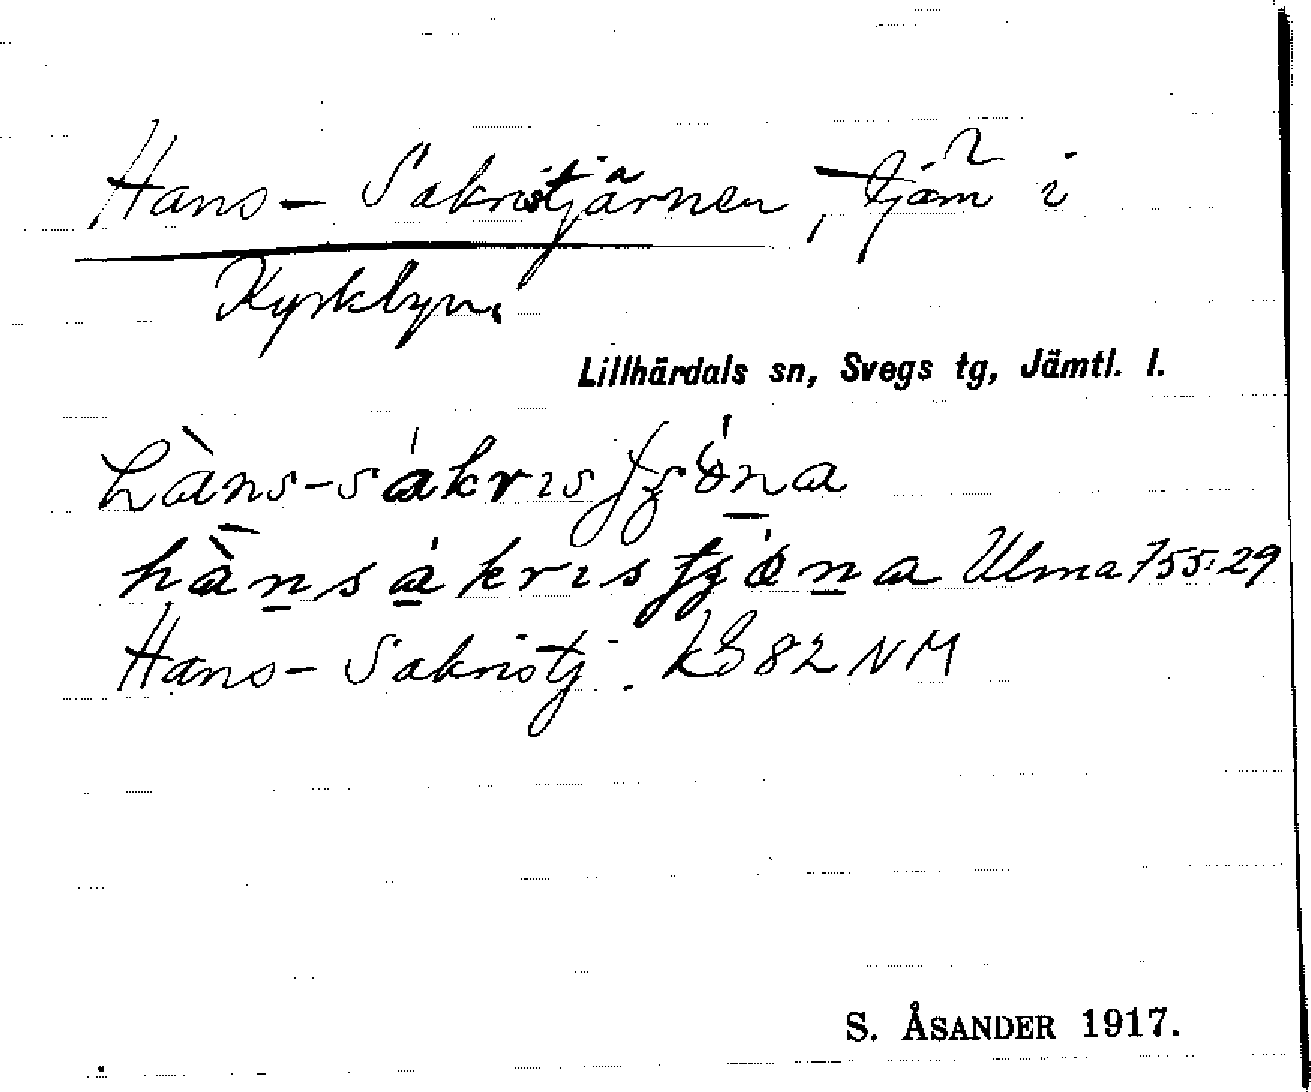 Hans-Sakristjärnen, tjärn i
Kyrkbyn.
Lillhärdals sn, Svegs tg, Jämtl. l.
hàns-sákristjǿna
hànsákristjǿna Ulma 755:29
Hans-Sakristj. kE 82 NM
S. ÅSANDER 1917.